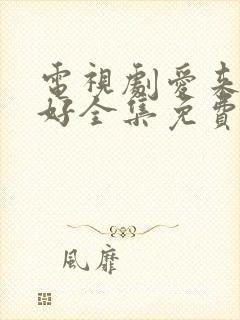 電視劇愛來
好全集免費
風靡